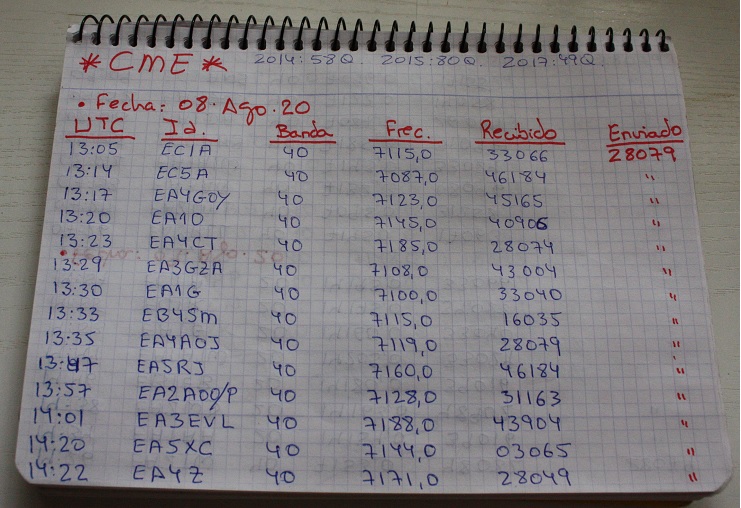 * CME * 2014:58Q. 2015:80Q. 2017:49Q.
• Fecha: 08. Ago. 20
UTC Id. Banda Frec. Recibido Enviado
13:05 EC1A 40 7115,0 33066 28079
13:14 EC5A 40 7087,0 46184 "
13:17 EA4GOY 40 7123,0 45165 "
13:20 EA1O 40 7145,0 40906 "
13:23 EA4CT 40 7185,0 28074 "
13:29 EA3GZA 40 7108,0 43004 "
13:30 EA1G 40 7100,0 33040 "
13:33 EB4SM 40 7115,0 16035 "
13:35 EA4AOJ 40 7119,0 28079 "
13:47 EA5RJ 40 7160,0 46184 "
13:57 EA2AOO/P 40 7128,0 31163 "
14:01 EA3EVL 40 7188,0 43904 "
14:20 EA5XC 40 7144,0 03065 "
14:22 EA4Z 40 7171,0 28049 "